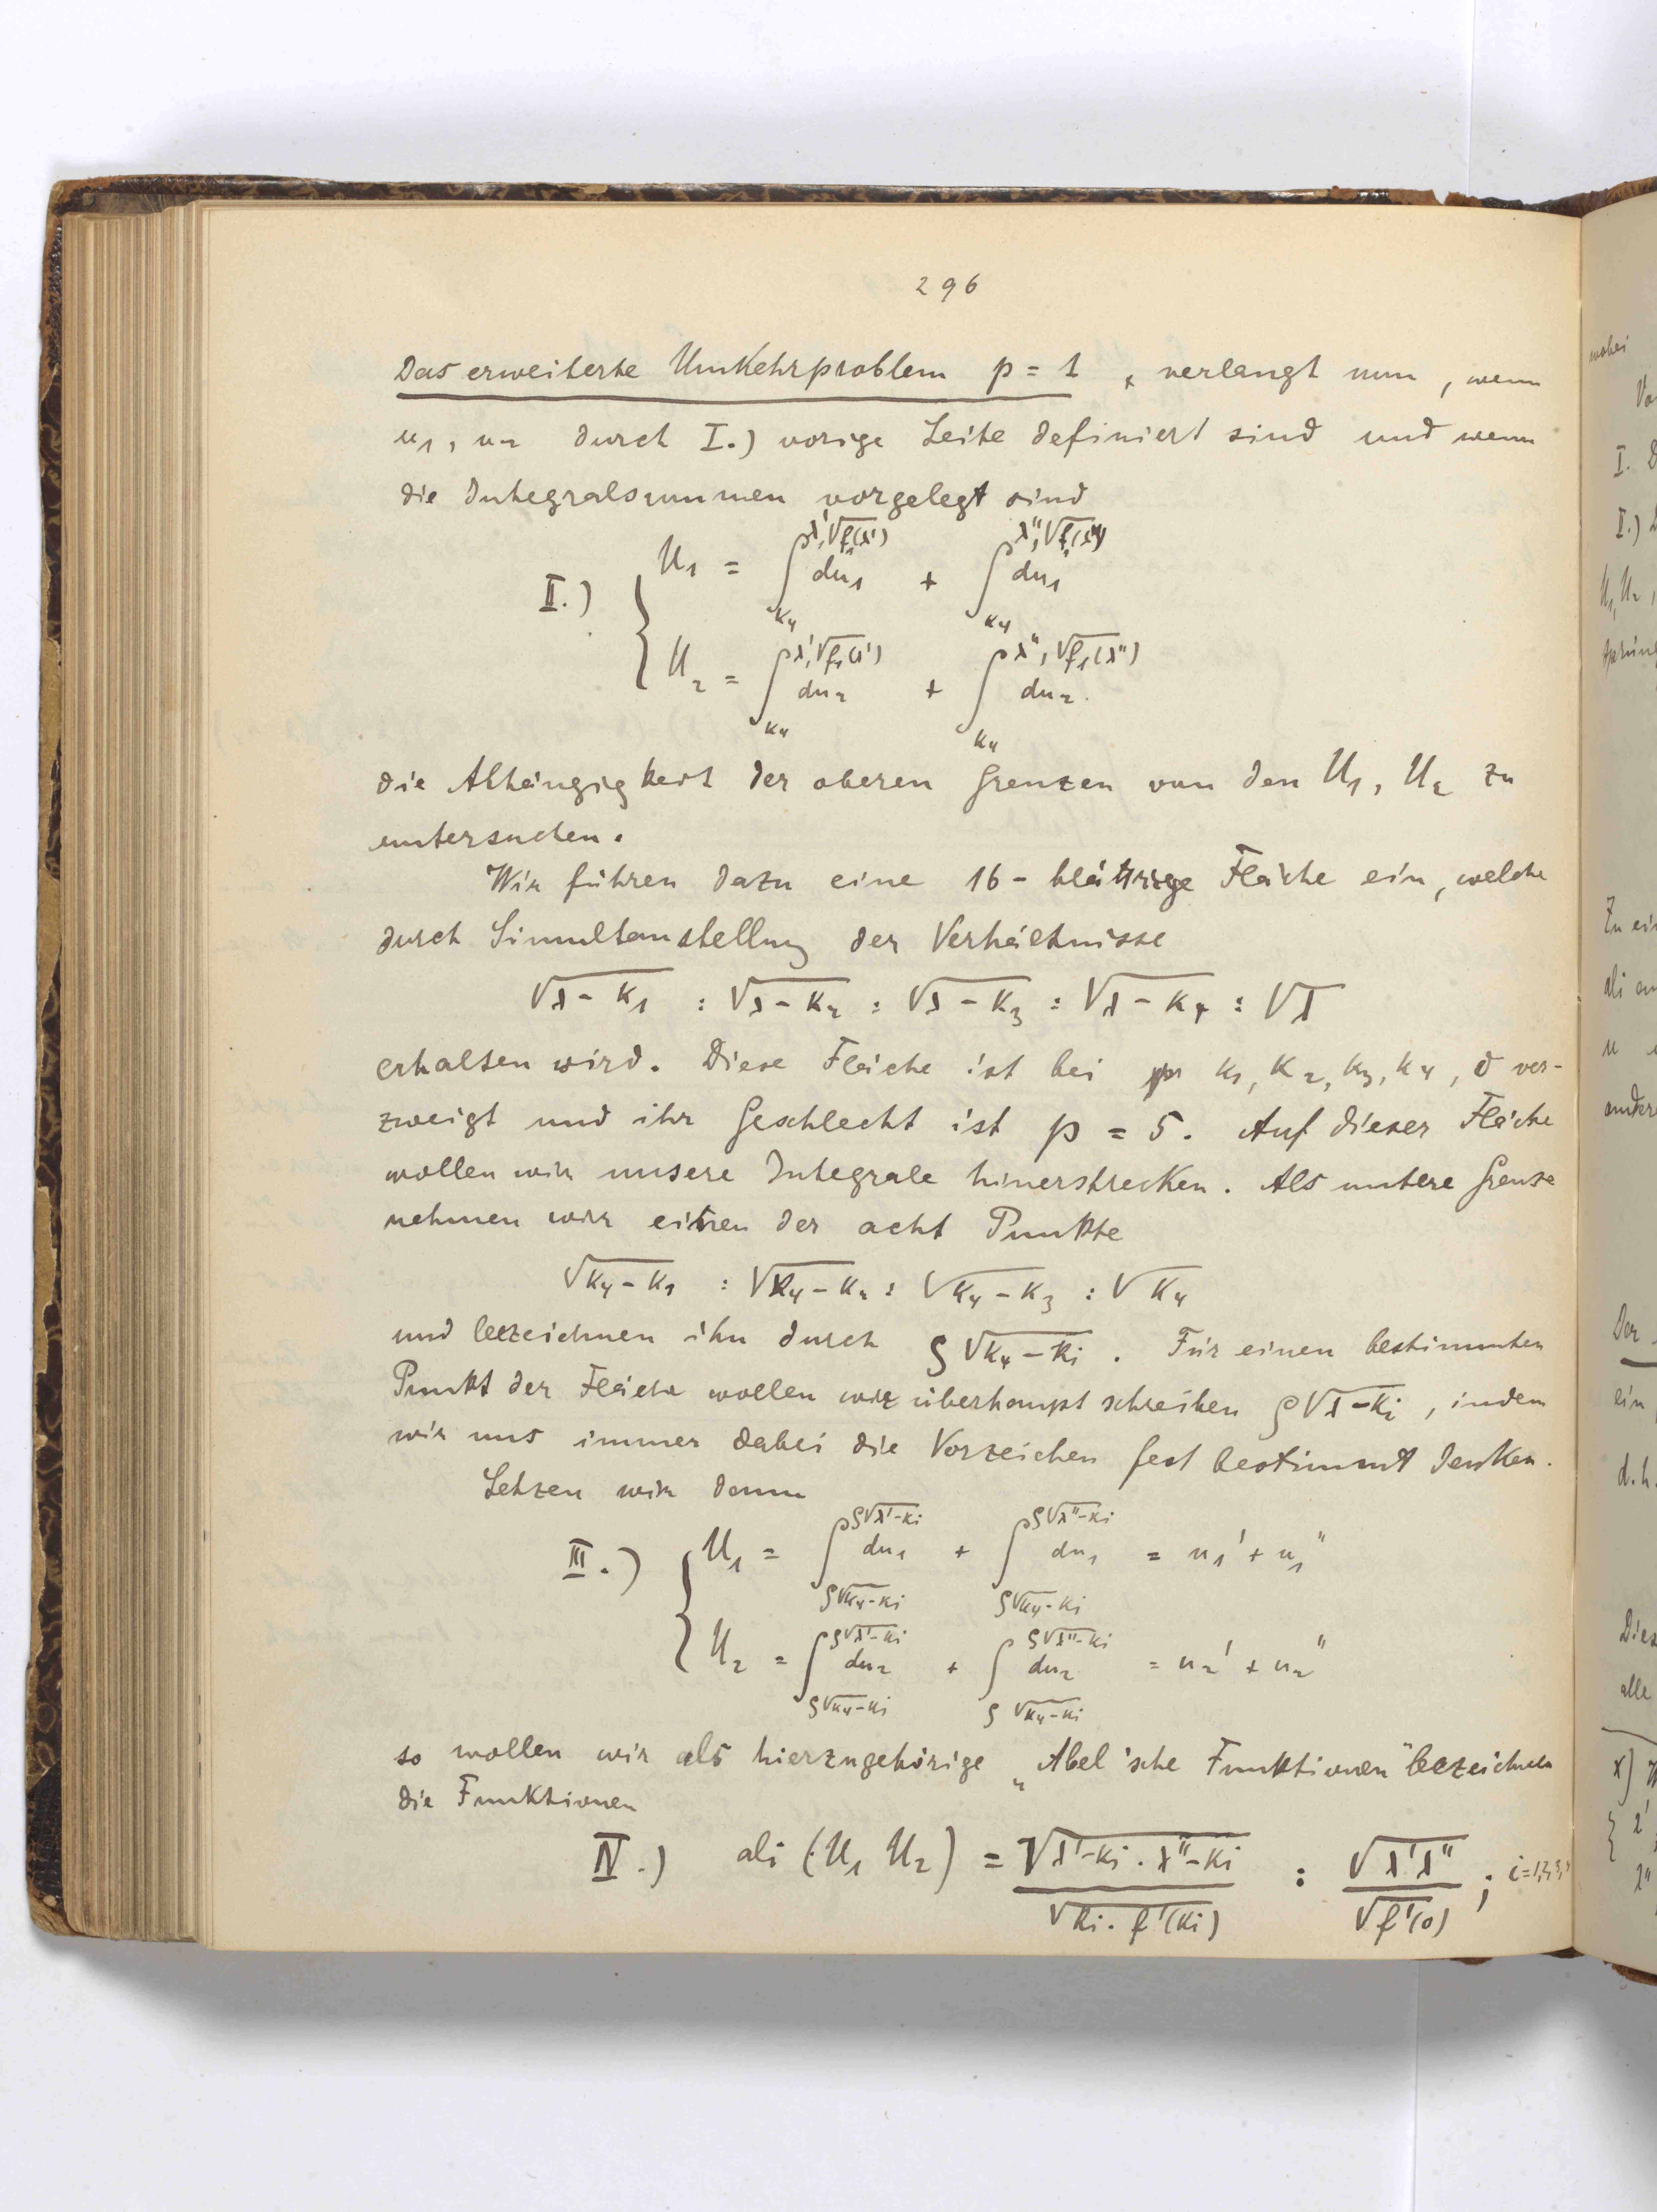 296
Das erweiterte Umkehrproblem p = 1, verlangt nun, wenn
u₁, u₂ durch I.) vorige Seite definiert sind und wenn
die Integralsummen vorgelegt sind
II.) { U₁ = ∫_{k₄}^{λ',√f₁(λ')} du₁ + ∫_{k₄}^{λ'',√f₁(λ'')} du₁
U₂ = ∫_{k₄}^{λ',√f₁(λ')} du₂ + ∫_{k₄}^{λ'',√f₁(λ'')} du₂.
die Abhängigkeit der oberen Grenzen von den U₁, U₂ zu
untersuchen.
Wir führen dazu eine 16-blättrige Fläche ein, welche
durch Simultanstellung der Verhältnisse
√λ-k₁ : √λ-k₂ : √λ-k₃ : √λ-k₄ : √λ
erhalten wird. Diese Fläche ist bei k₁, k₂, k₃, k₄, 0 ver-
zweigt und ihr Geschlecht ist p = 5. Auf dieser Fläche
wollen wir unsere Integrale hinerstrecken. Als untere Grenze
nehmen wir einen der acht Punkte
√k₄-k₁ : √k₄-k₂ : √k₄-k₃ : √k₄
und bezeichnen ihn durch ϱ√k₄-ki. Für einen bestimmten
Punkt der Fläche wollen wir überhaupt schreiben ϱ√λ-ki, indem
wir uns immer dabei die Vorzeichen fest bestimmt denken.
Setzen wir dann
III.) { U₁ = ∫_{ϱ√k₄-ki}^{ϱ√λ'-ki} du₁ + ∫_{ϱ√k₄-ki}^{ϱ√λ''-ki} du₁ = u₁' + u₁''
U₂ = ∫_{ϱ√k₄-ki}^{ϱ√λ'-ki} du₂ + ∫_{ϱ√k₄-ki}^{ϱ√λ''-ki} du₂ = u₂' + u₂''
so wollen wir als hierzugehörige „Abel'sche Funktionen" bezeichnen
die Funktionen
IV.) ali (U₁ U₂) = √λ'-ki · λ''-ki / √ki · f'(ki) : √λ'λ'' / √f'(0) ; i=1,2,3,